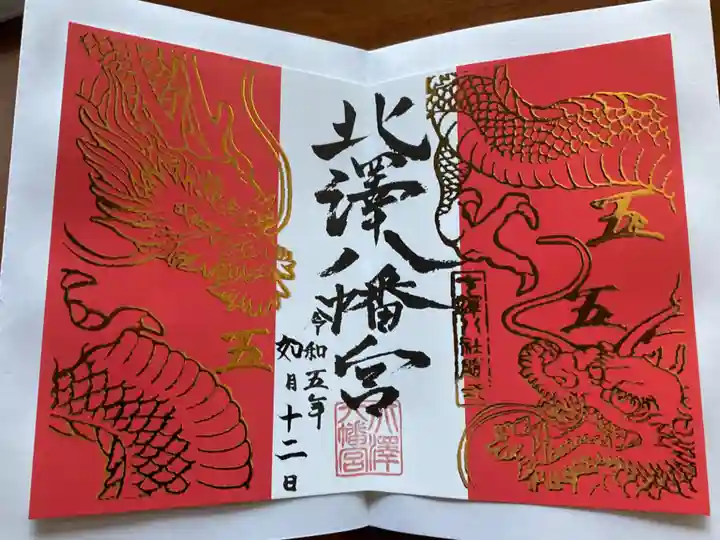 五
五
北澤八幡宮
令和五年
如月十二日
五
北澤
八幡宮